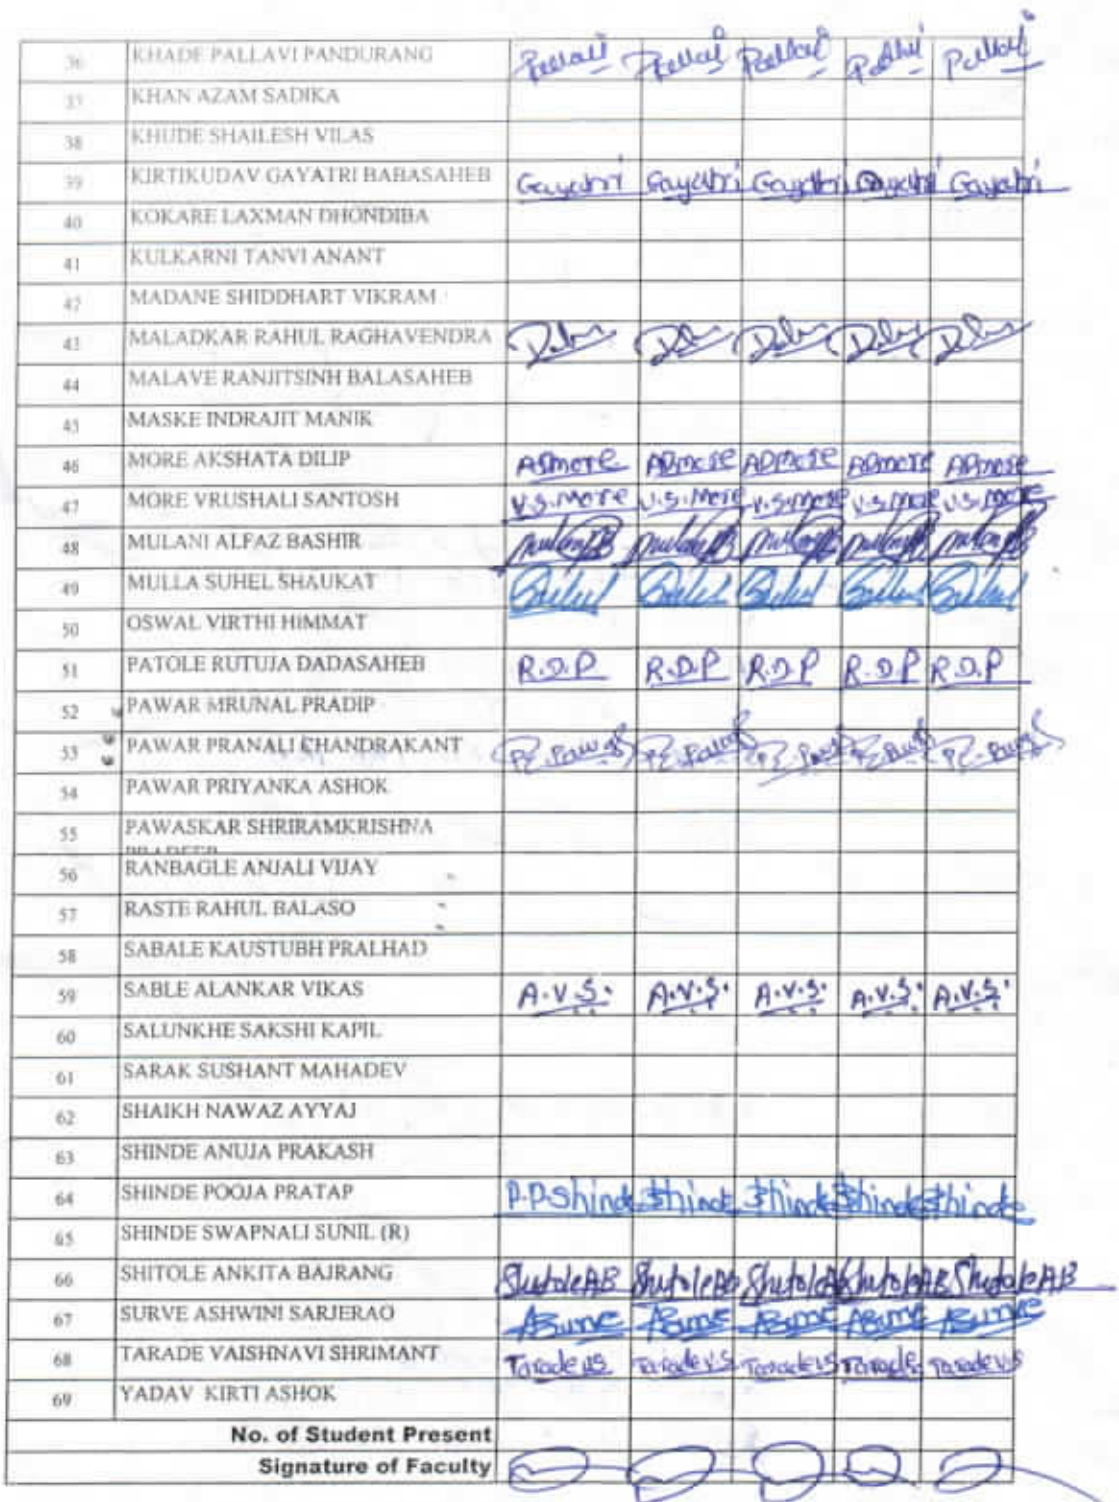 36 KHADE PALLAVI PANDURANG Pallavi Pallavi Pallavi Pallavi Pallavi
37 KHAN AZAM SADIKA
38 KHUDE SHAILESH VILAS
39 KIRTIKUDAV GAYATRI BABASAHEB Gayatri Gayatri Gayatri Gayatri Gayatri
40 KOKARE LAXMAN DHONDIBA
41 KULKARNI TANVI ANANT
42 MADANE SHIDDHART VIKRAM
43 MALADKAR RAHUL RAGHAVENDRA
44 MALAVE RANJITSINH BALASAHEB
45 MASKE INDRAJIT MANIK
46 MORE AKSHATA DILIP ADMORE ADMORE ADMORE ADMORE ADMORE
47 MORE VRUSHALI SANTOSH V.S.More V.S.More V.S.More V.S.More V.S.More
48 MULANI ALFAZ BASHIR
49 MULLA SUHEL SHAUKAT
50 OSWAL VIRTHI HIMMAT
51 PATOLE RUTUJA DADASAHEB R.D.P R.D.P R.D.P R.D.P R.D.P
52 PAWAR MRUNAL PRADIP
53 PAWAR PRANALI CHANDRAKANT
54 PAWAR PRIYANKA ASHOK
55 PAWASKAR SHRIRAMKRISHNA
56 RANBAGLE ANJALI VIJAY
57 RASTE RAHUL BALASO
58 SABALE KAUSTUBH PRALHAD
59 SABLE ALANKAR VIKAS A.V.S. A.V.S. A.V.S. A.V.S. A.V.S.
60 SALUNKHE SAKSHI KAPIL
61 SARAK SUSHANT MAHADEV
62 SHAIKH NAWAZ AYYAJ
63 SHINDE ANUJA PRAKASH
64 SHINDE POOJA PRATAP P.P.Shinde Shinde Shinde Shinde Shinde
65 SHINDE SWAPNALI SUNIL (R)
66 SHITOLE ANKITA BAJRANG ShitoleAB ShitoleAB ShitoleAB ShitoleAB ShitoleAB
67 SURVE ASHWINI SARJERAO ASurve ASurve ASurve ASurve ASurve
68 TARADE VAISHNAVI SHRIMANT Taradevs Taradevs Taradevs Taradevs Taradevs
69 YADAV KIRTI ASHOK
No. of Student Present
Signature of Faculty